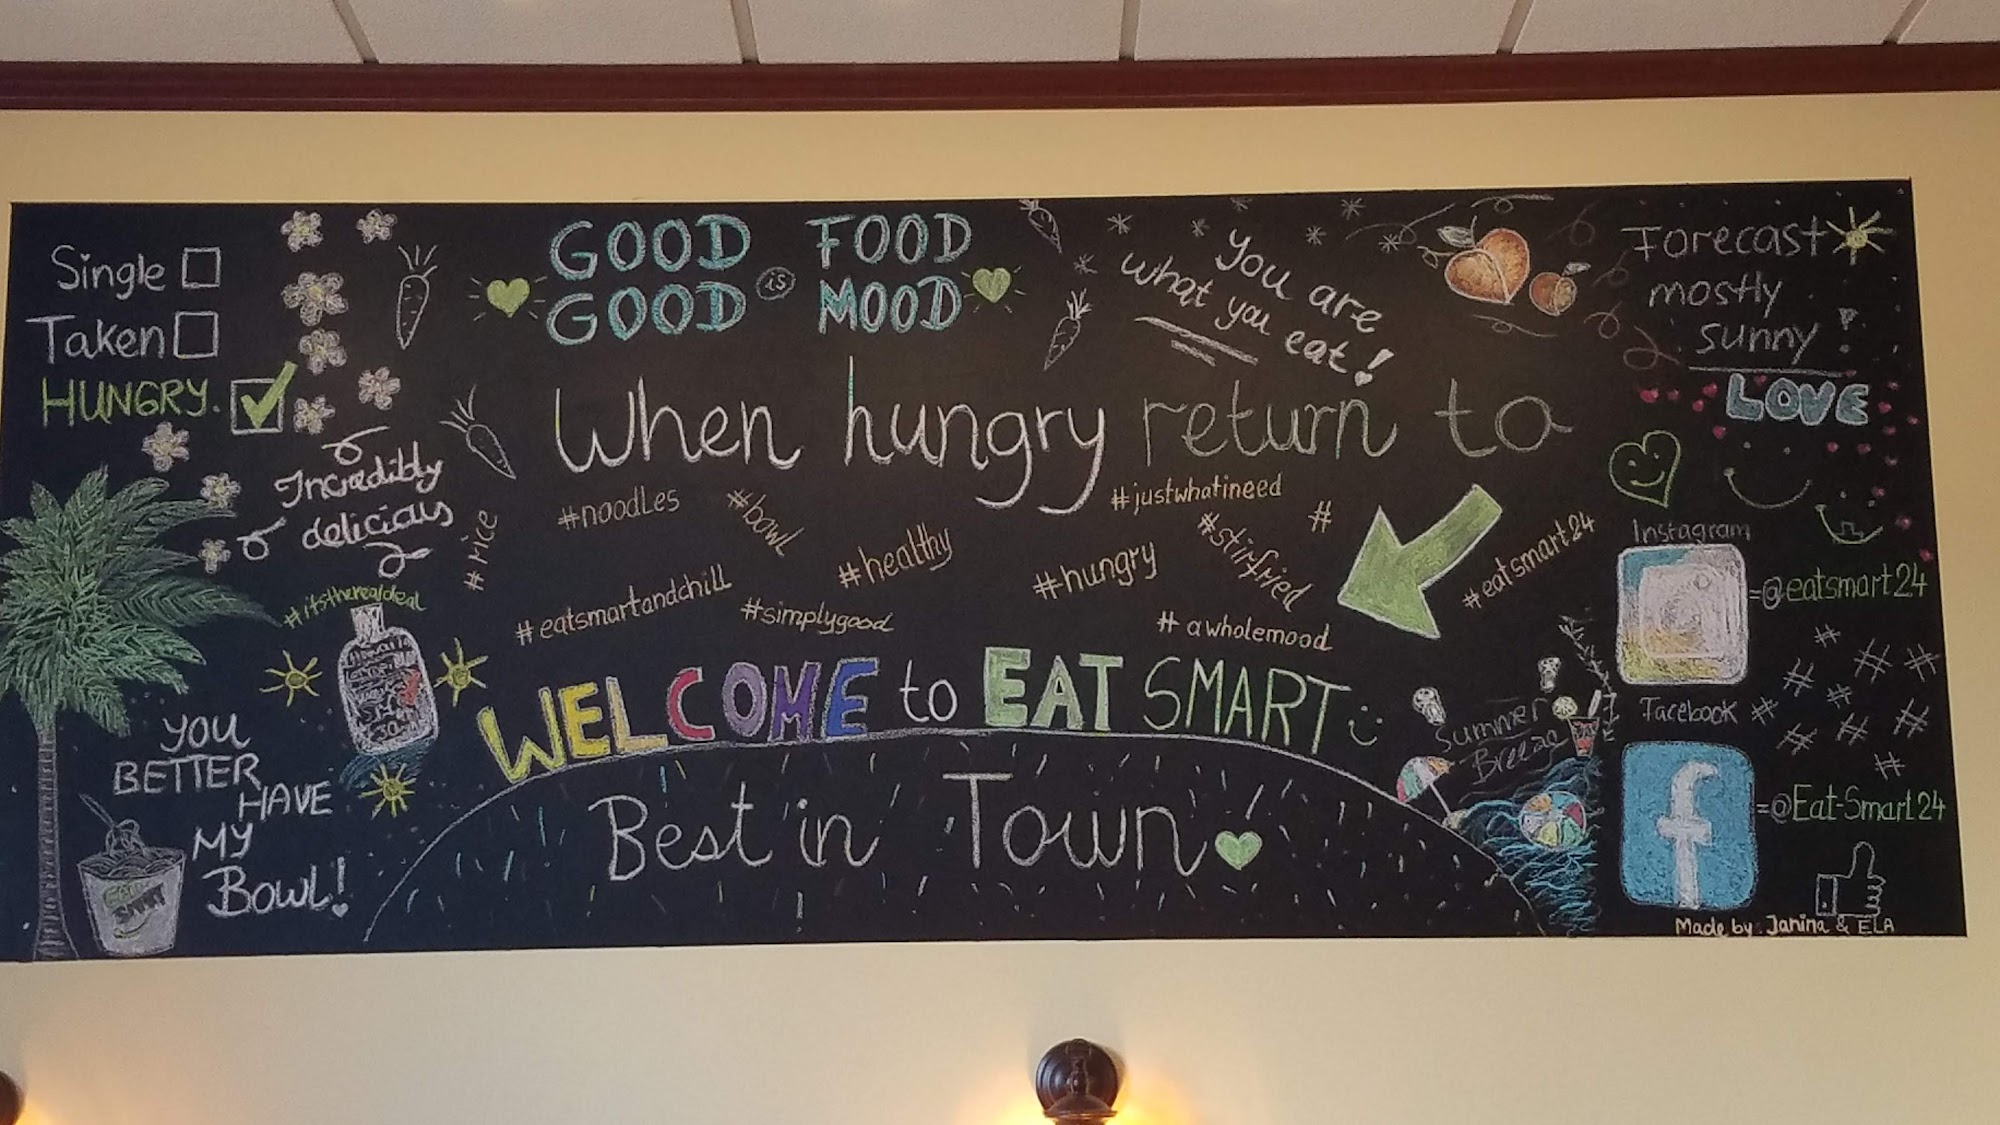 Single
Taken
HUNGRY.
Incredibly
delicious
#itstherealdeal
YOU
BETTER
HAVE
MY
BOWL!
GOOD FOOD
is
GOOD MOOD
You are
what you eat!
When hungry return to
#rice
#noodles
#bowl
#healthy
#justwhatineed
#stirfried
#
#hungry
#eatsmart24
#eatsmartandchill
#simplygood
#awholemood
WELCOME to EAT SMART
Best in Town
Summer
Forecast
mostly
sunny
LOVE
Instagram
=@eatsmart24
Facebook
=@Eat-Smart24
Made by: Janina & ELA